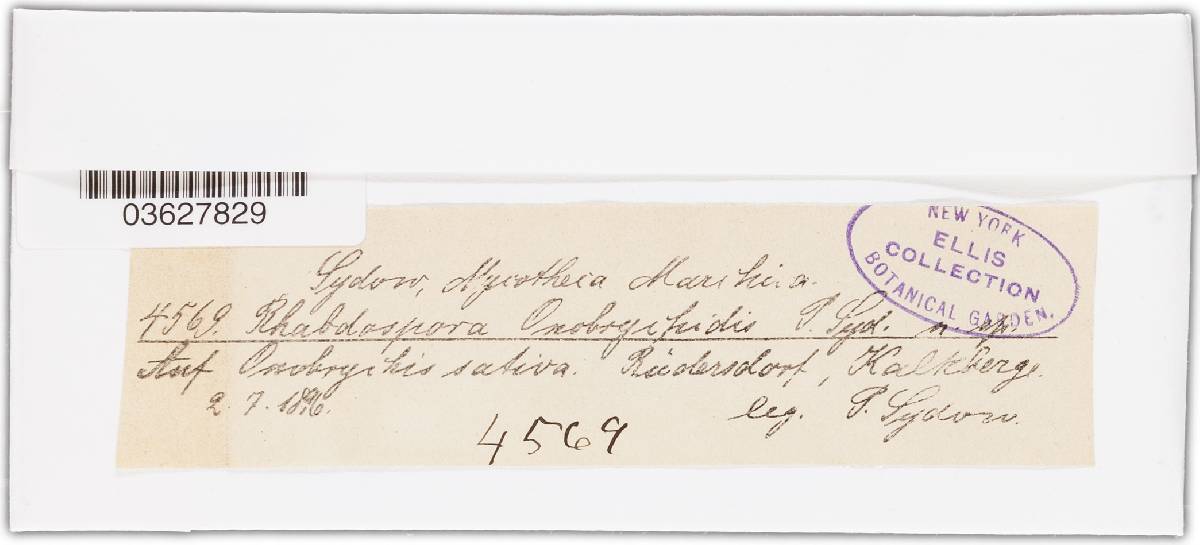 03627829
NEW YORK
ELLIS
COLLECTION
BOTANICAL GARDEN.
Sydow, Mycotheca Marchica.
4569. Rhabdospora Onobrychidis P. Syd. n. sp.
Auf Onobrychis sativa. Rüdersdorf, Kalkberge.
2. 7. 1896. leg. P. Sydow.
4569